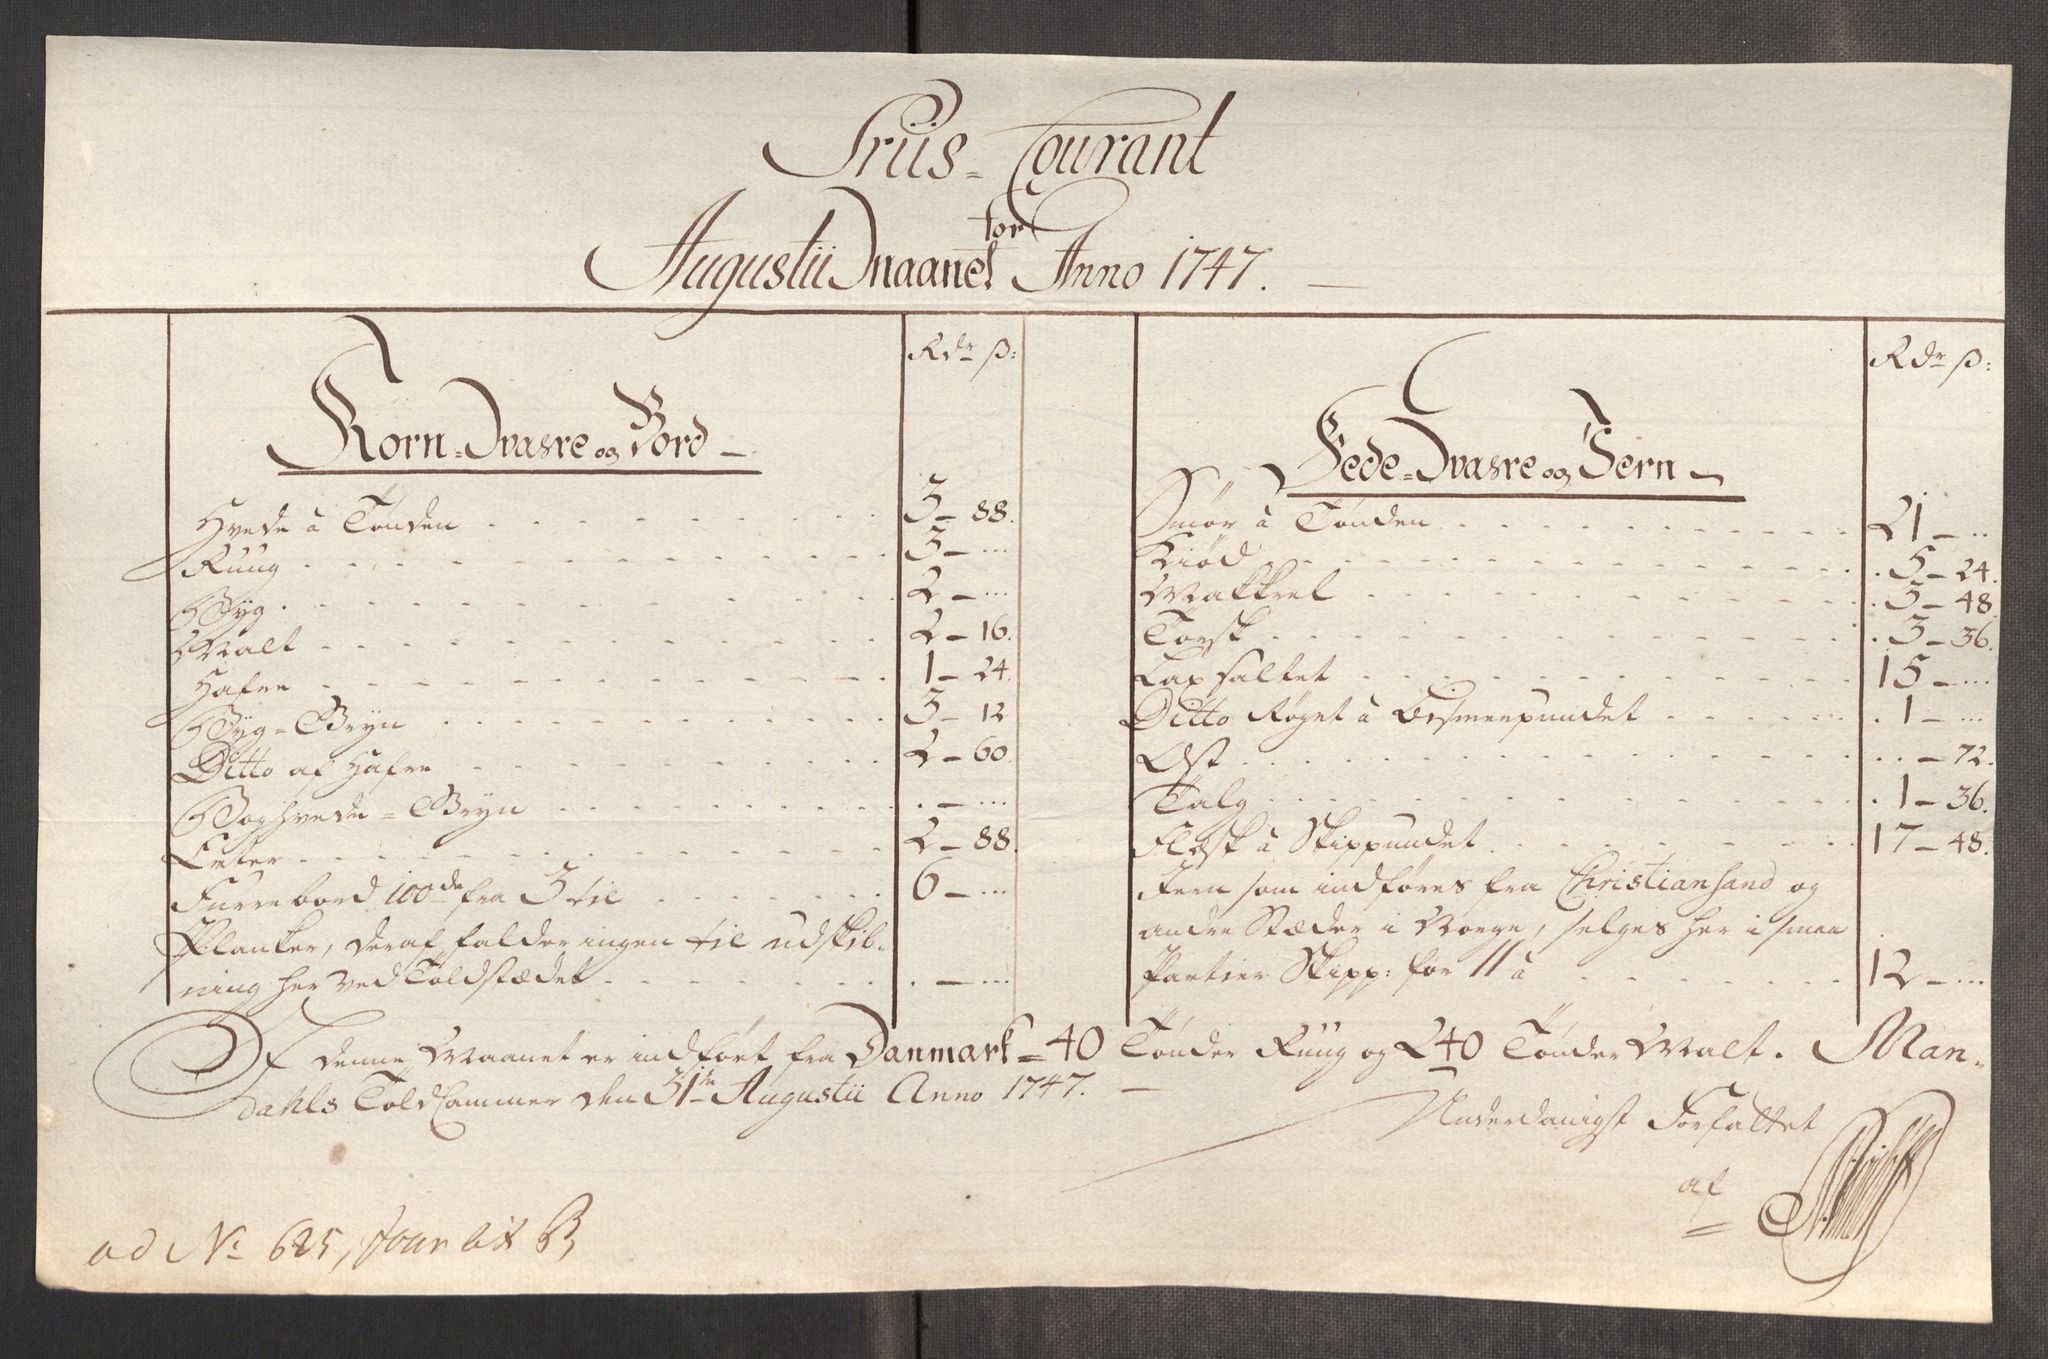 Priis-Courant
for
Augustii Maanet Anno 1747.
Rdr ß:
Korn-Vahre og Bord
Hvede à Tønden 3 – 88.
Ruug 3 – ...
Byg 2 – ...
Malt 2 – 16.
Hafre 1 – 24.
Byg-Gryn 3 – 12
Ditto af Hafre 2 – 60.
Boghvede-Gryn . – ...
Erter 2 – 88.
Furrebord 100de fra 3 til 6 – ...
Planker, deraf falder ingen til udskib-
ning her ved Toldstædet . – ...
Rdr ß:
Fede-Vahre og Jern
Smør à Tønden 21 – ..
Kiød 5 – 24.
Makkrel 3 – 48
Torsk 3 – 36.
Lax saltet 15 – ...
Ditto Røget à Bismerpundet 1 – ...
Ost .. – 72.
Talg 1 – 36.
Flesk à Skippundet 17 – 48.
Jern som indføres fra Christiansand og
andre Stæder i Norge, selges her i smaa
Partier Skipp: for 11 à 12 – ...
I denne Maanet er indført fra Danmark = 40 Tønder Ruug og 240 Tønder Malt. Man-
dahls Told Cammer den 31te Augustii Anno 1747.
Underdanigst Forfattet
af
ad No 625, Jour lit B,